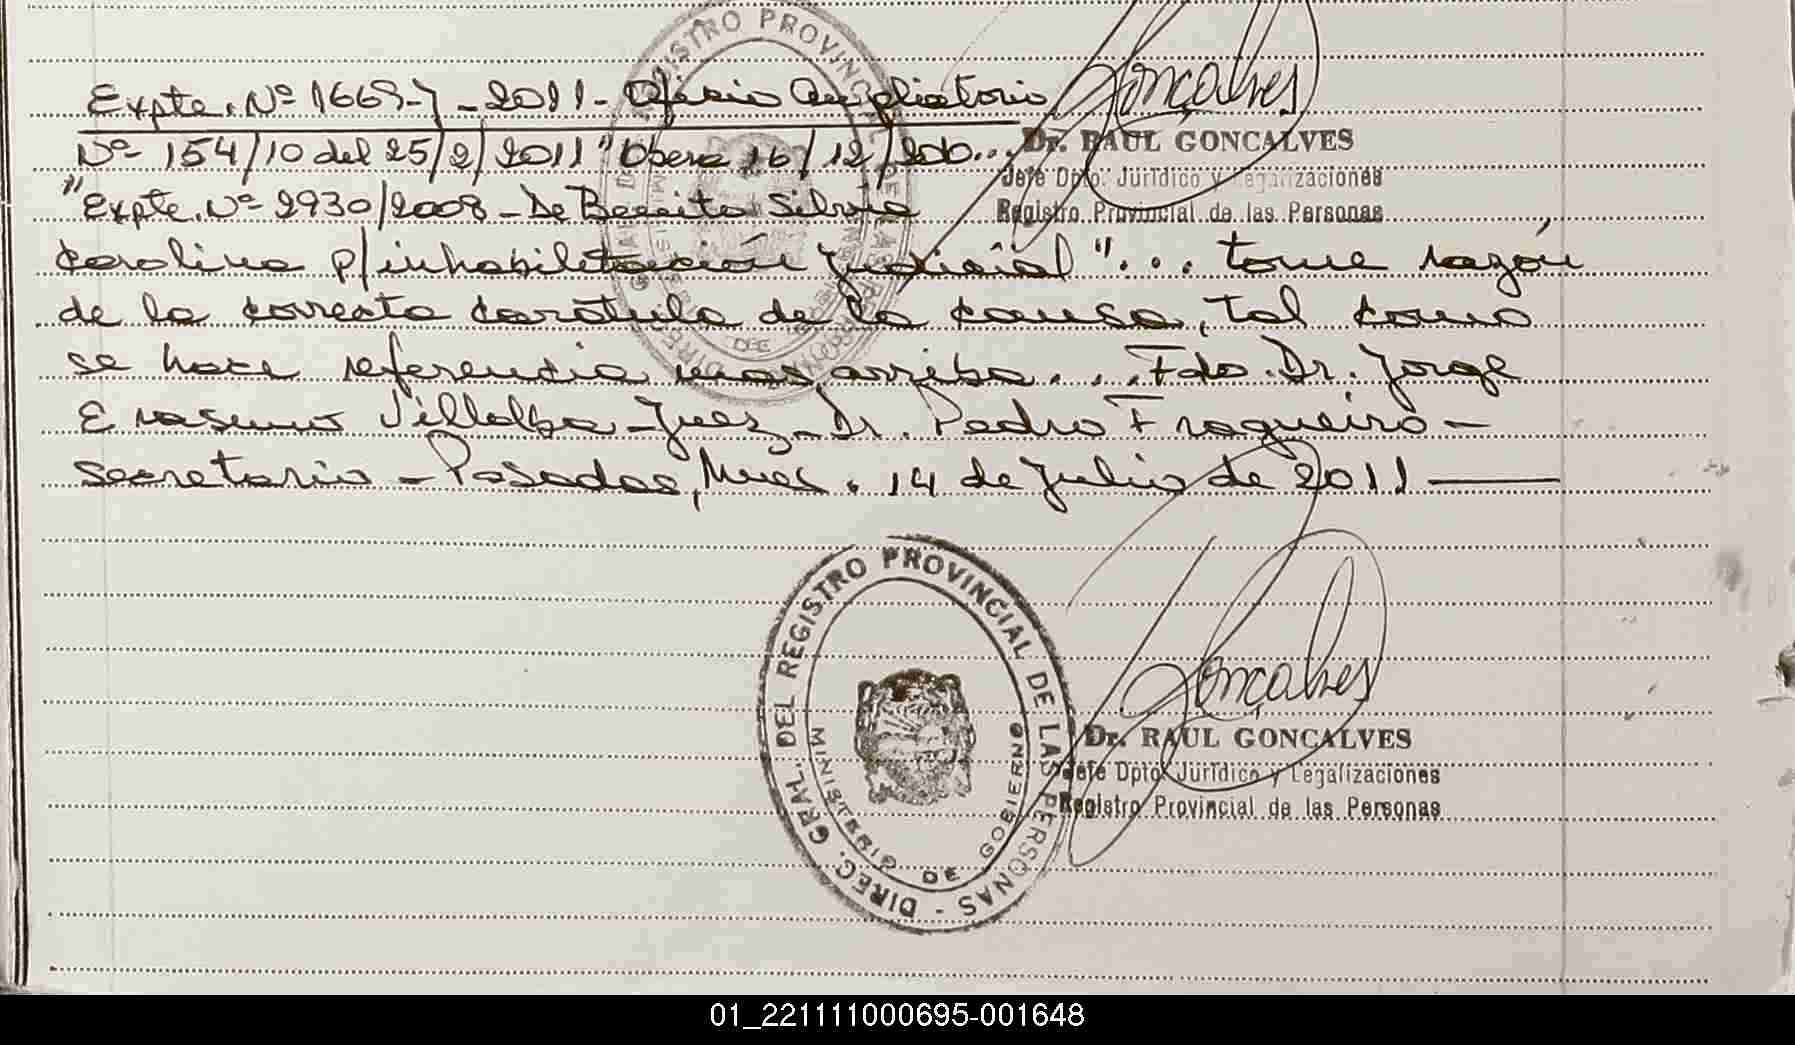 Expte. Nº 1669-7-2011- Oficio Ampliatorio
Nº 154/10 del 25/2/2011 "Obera 16/12/200...
"Expte. Nº 2930/2008 - De Benito Silvia
Carolina p/inhabilitación judicial"... tome razón
de la correcta caratula de la causa, tal como
se hace referencia mas arriba... Fdo. Dr. Jorge
Erasmo Villalba - Juez - Dr. Pedro Fragueiro -
secretario - Posadas, Mnes. 14 de Julio de 2011
Gonçalves
Dr. RAUL GONCALVES
Jefe Dpto. Jurídico y Legalizaciones
Registro Provincial de las Personas
DIREC. GRAL. DEL REGISTRO PROVINCIAL DE LAS PERSONAS -
MINISTERIO DE GOBIERNO
Gonçalves
Dr. RAUL GONCALVES
Jefe Dpto. Jurídico y Legalizaciones
Registro Provincial de las Personas
DIREC. GRAL. DEL REGISTRO PROVINCIAL DE LAS PERSONAS -
MINISTERIO DE GOBIERNO
01_221111000695-001648